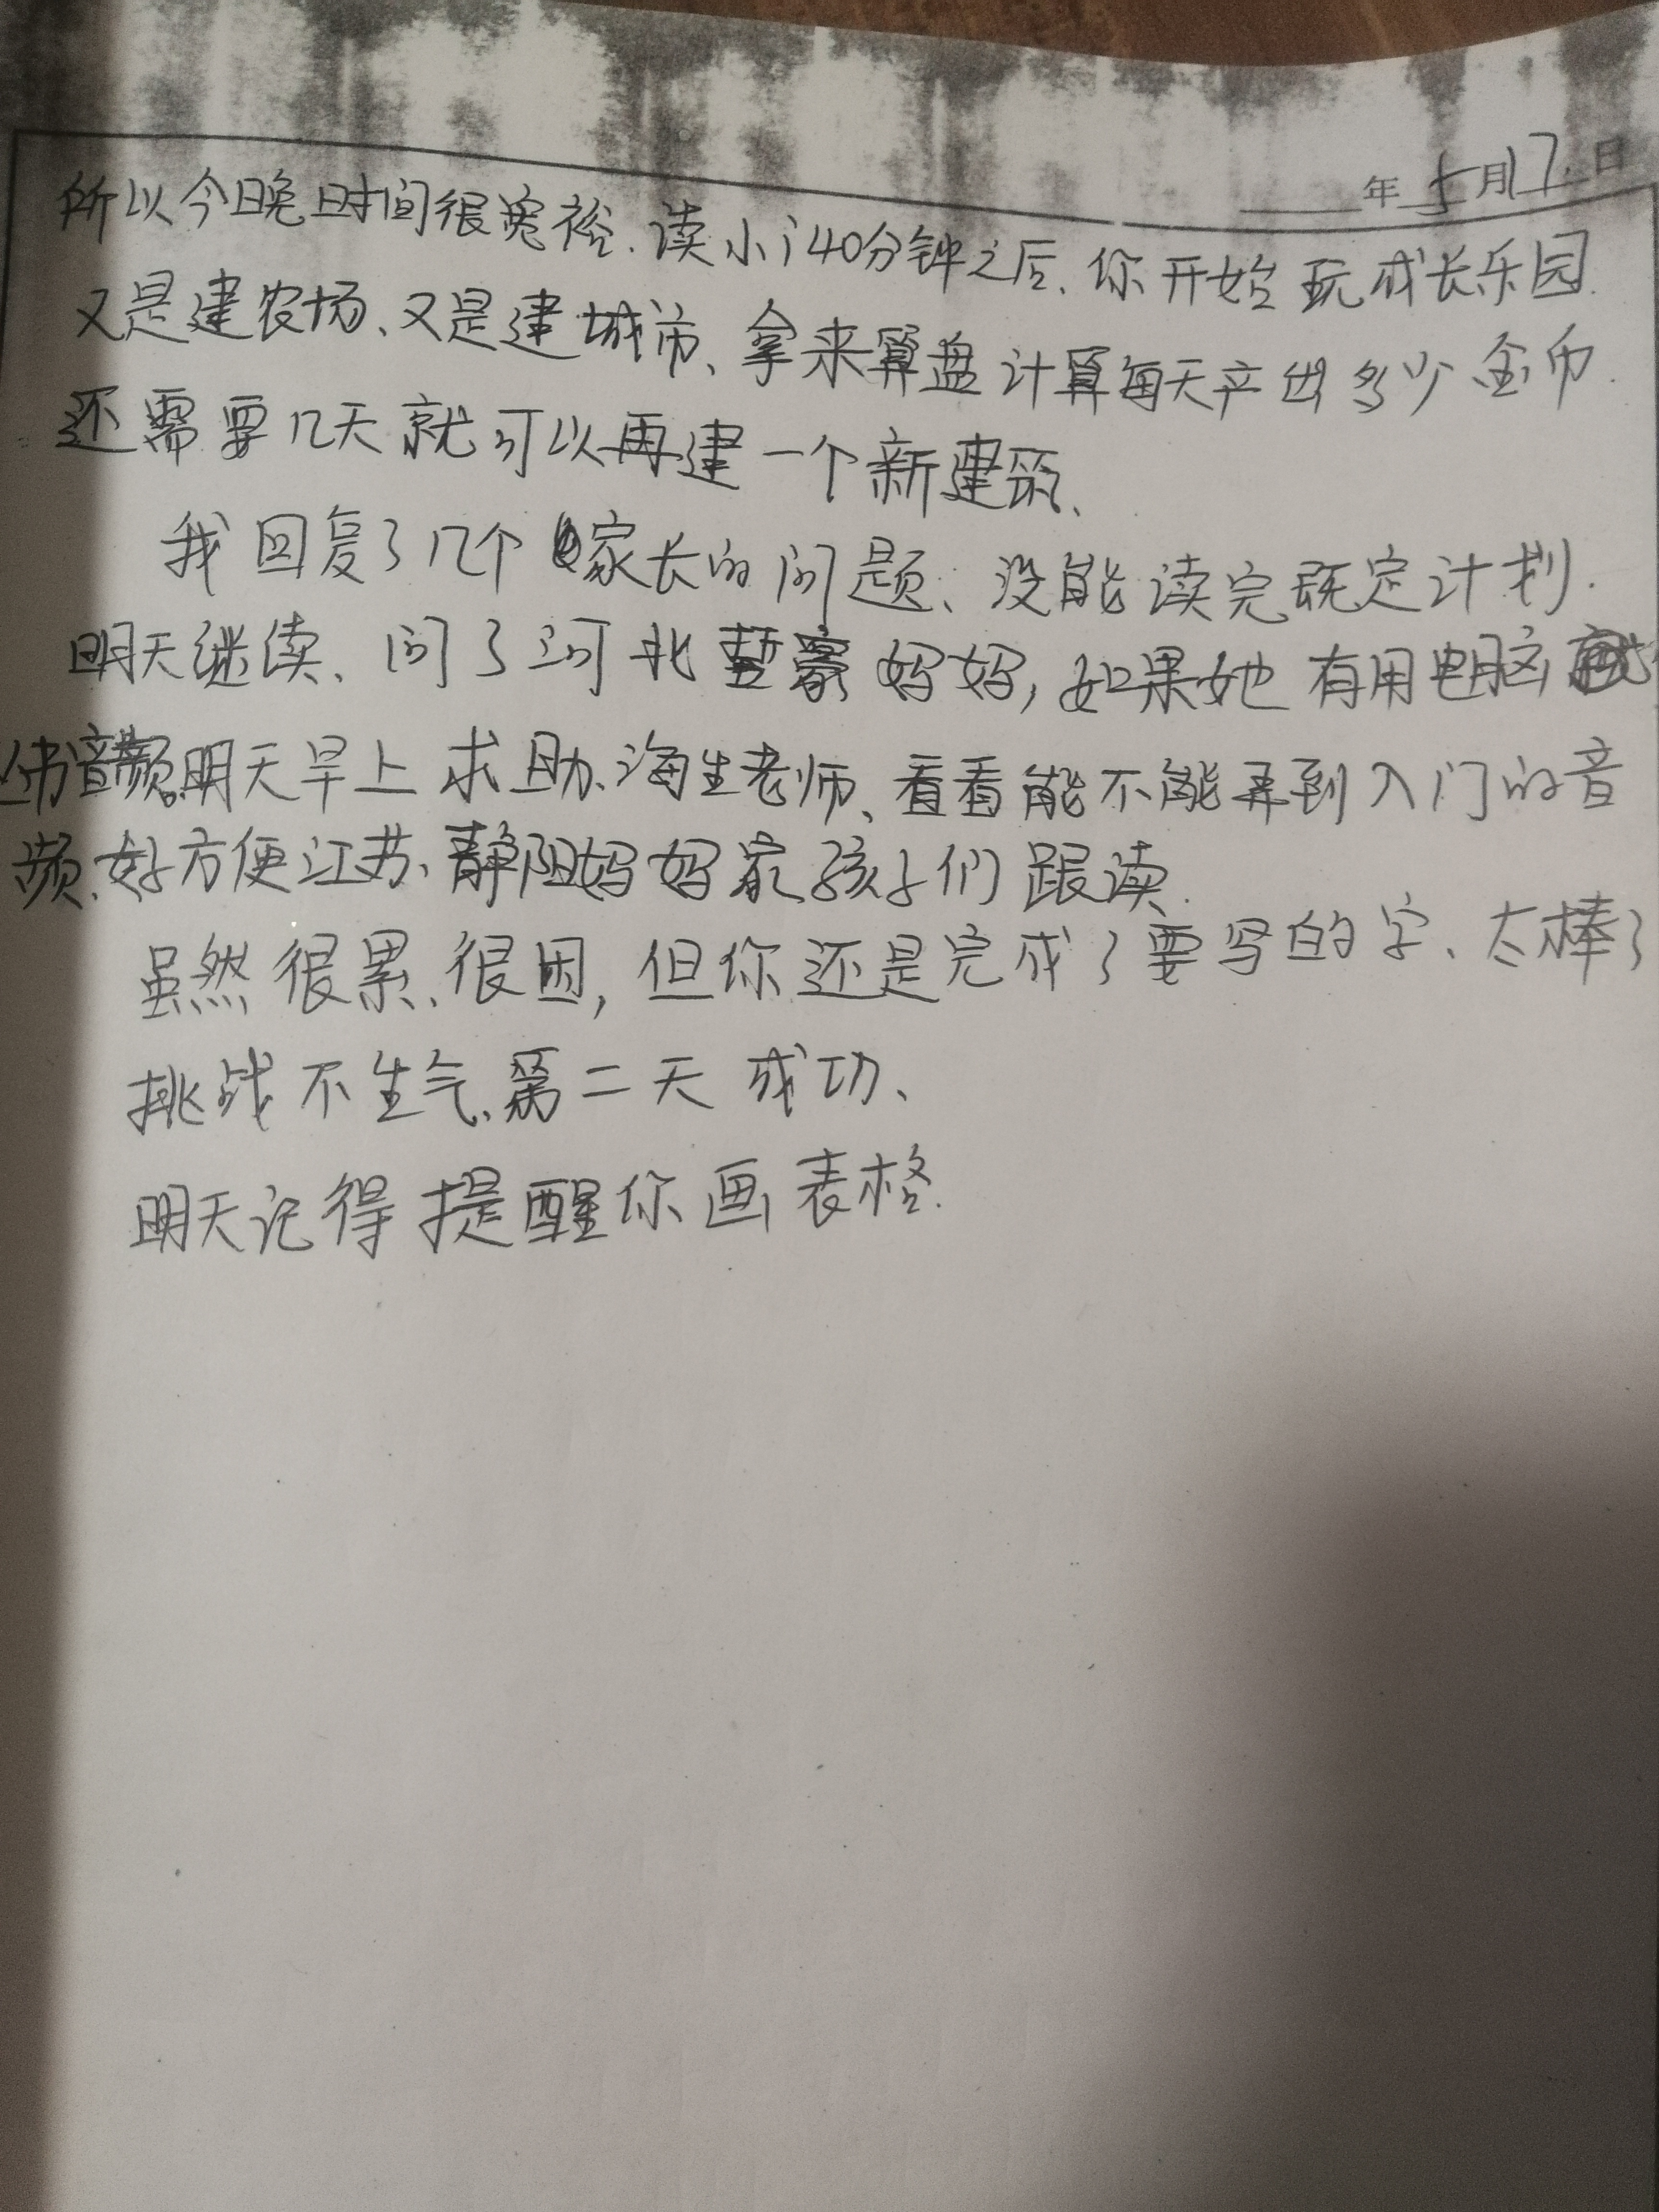 年5月17日
所以今晚时间很宽裕.读小i40分钟之后、你开始玩成长乐园.
又是建农场、又是建城市、拿来算盘计算每天产出多少金币.
还需要几天就可以再建一个新建筑、
我回复了几个家长的问题、没能读完既定计划.
明天继续、问了河北 妈妈,如果她有用电脑
音频明天早上求助、海生老师、看看能不能弄到入门的音
频、好方便江苏、静阳妈妈家孩子们跟读.
虽然很累、很困,但你还是完成了要写的字、太棒了
挑战不生气、第二天成功、
明天记得提醒你画表格.